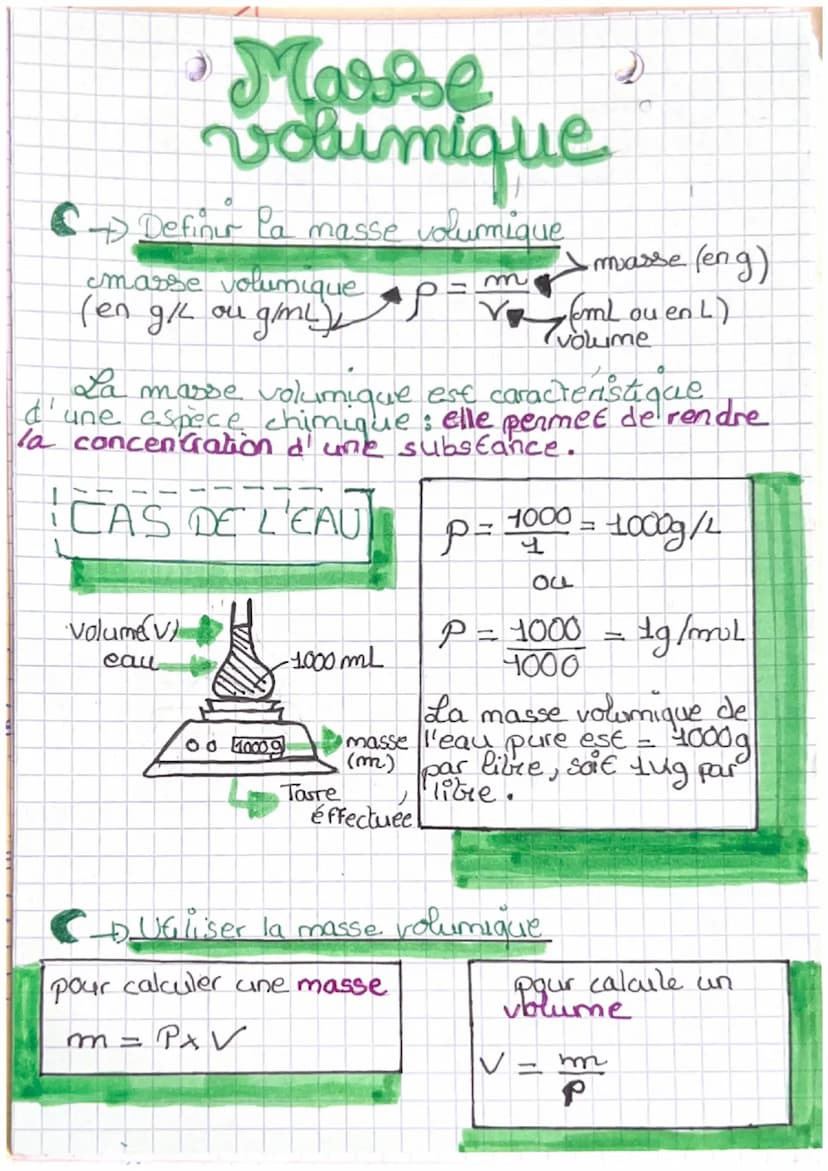 Masse
volumique
→ Definir la masse volumique
masse volumique
(en g/L ou g/mL)
ρ = m/V
masse (en g)
(mL ou en L)
volume
La masse volumique est caractéristique
d'une espèce chimique : elle permet de rendre
la concentration d'une substance.
CAS DE L'EAU
volume(V)
eau
1000 mL
1000g
masse
(m)
Tare
éffectuée
ρ = 1000/1 = 1000g/L
ou
ρ = 1000/1000 = 1g/mL
La masse volumique de
l'eau pure est = 1000g
par litre, soit 1kg par
litre.
→ Utiliser la masse volumique
pour calculer une masse
m = ρ x V
pour calcule un
volume
V = m/ρ